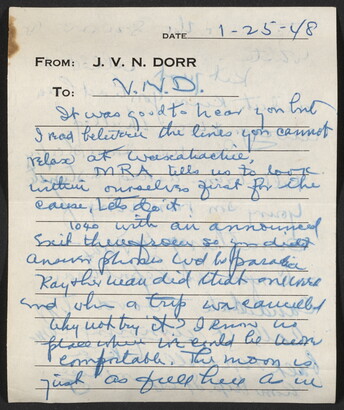 DATE 1-25-48
FROM: J. V. N. DORR
TO: V.N.D.
It was good to hear you but
I read between the lines you cannot
relax at Waxahachie,
MRA tells us to look
within ourselves first for the
cause, Let's do it
with an announced
so you didn't
answer phones
Ray
and when a trip was cancelled
Why not try it? I know no
place where we could be more
comfortable. The moon is
just as full here as in